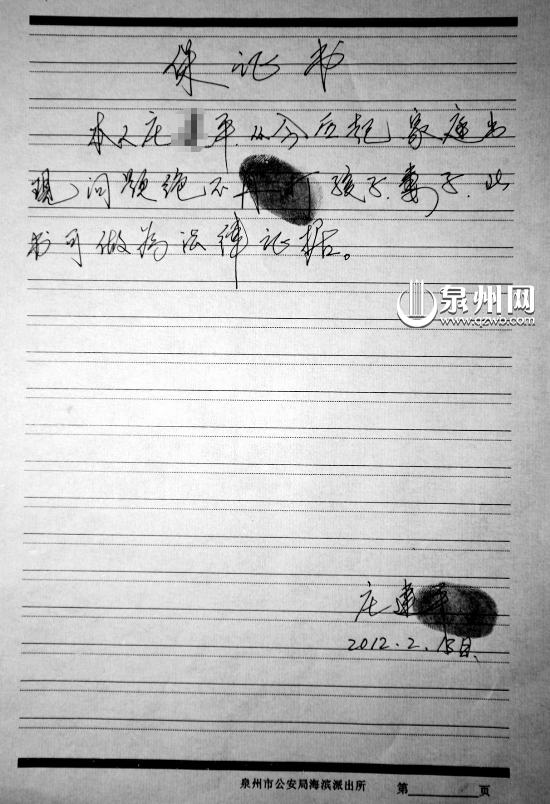 保证书
本人庄 平.从今后起家庭出
现问题绝不再打孩子.妻子.此
书可做为法律证据。
泉州网
www.qzwb.com
庄建平
2012.2.15日
泉州市公安局海滨派出所 第 页